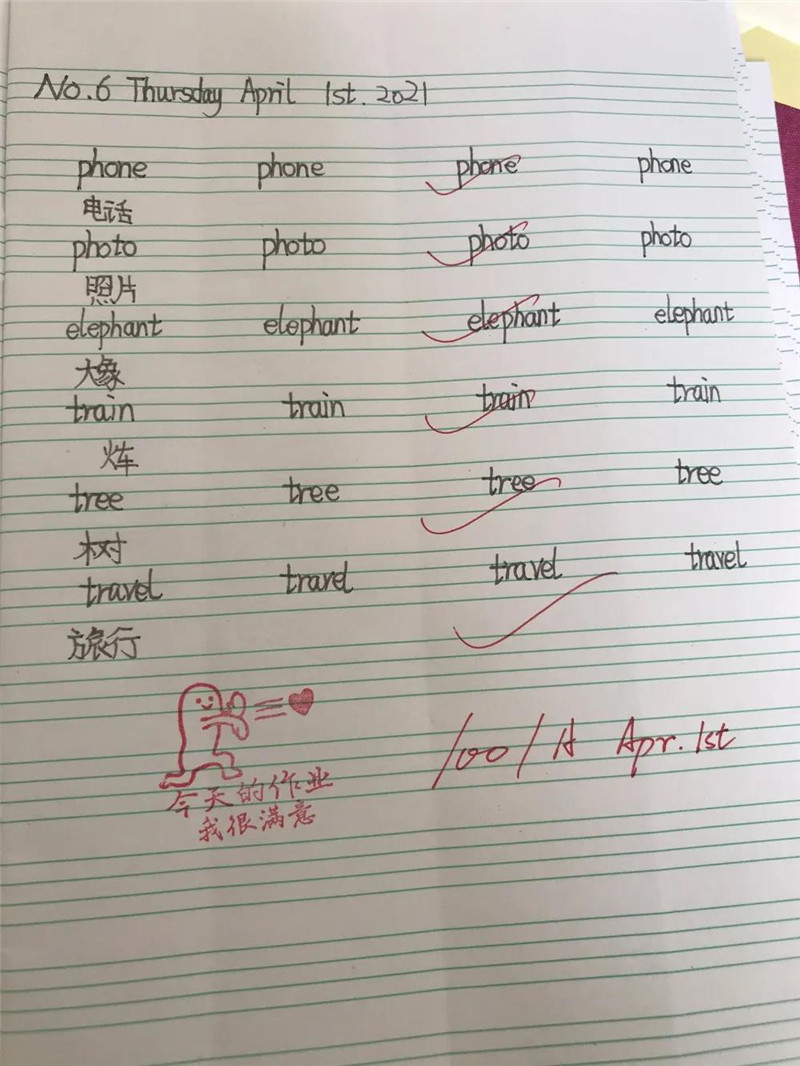 No.6 Thursday April 1st. 2021
phone phone phone phone
电话
photo photo photo photo
照片
elephant elephant elephant elephant
大象
train train train train
火车
tree tree tree tree
树
travel travel travel travel
旅行
今天的作业
我很满意
100/A Apr. 1st